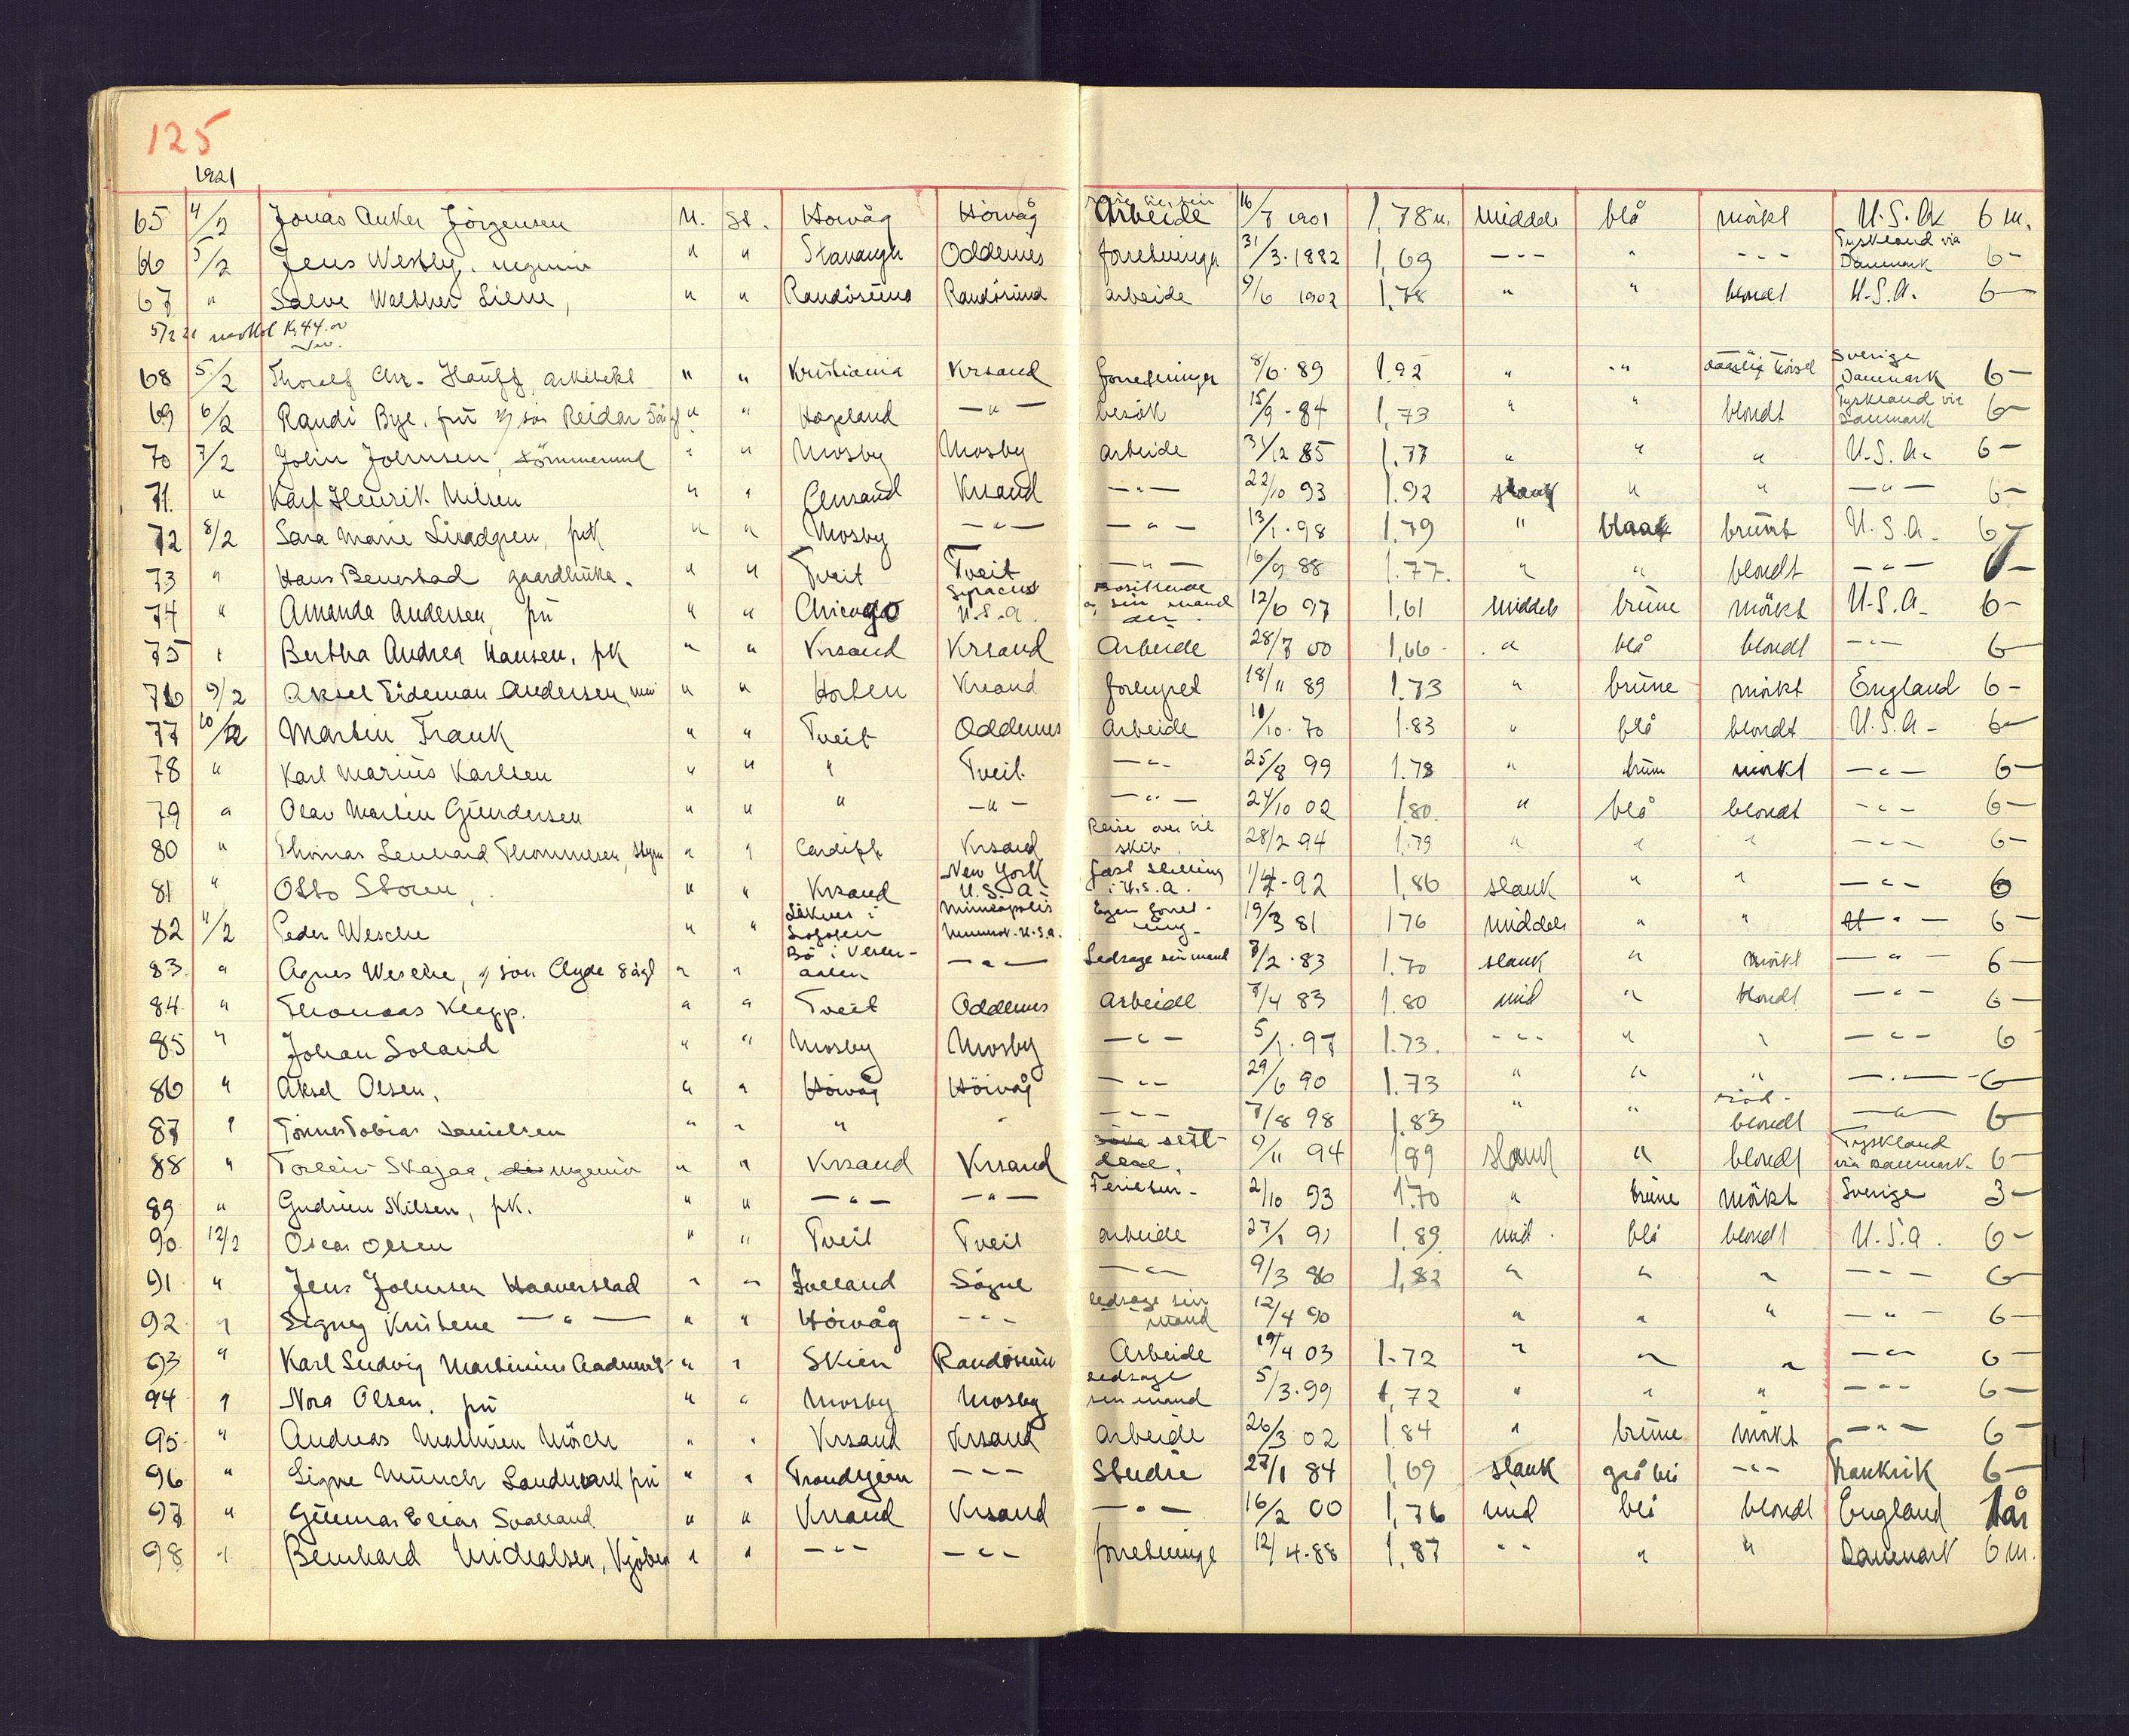 125
1921
65 4/2 Jonas Anker Jörgensen N. St. Hövåg Hövåg Arbeide 16/7 1901 1,78 m. middels blå mörkt U.S.A 6 m.
66 5/2 Jens Westby, ingeniör " " Stavanger Oddernes forretninger 31/3. 1882 1,69 - " - " - " - Tyskland via Danmark 6 -
67 " Salve Walther Liene, " " Randösund Randösund arbeide 9/6 1902 1,78 " " blondt U.S.A. 6 -
5/2 21 Kr 44.00
68 5/2 Thoralf Chr. Hauff, arkitekt " " Kristiania Krsand forretninger 8/6. 89 1.92 " " Sverige Danmark 6 -
69 6/2 Randi Bye, fru m/ sön Reidar " " Hægeland - " - besök 15/9 - 84 1,73 " " blondt Tyskland via Danmark 6 -
70 7/2 John Johnsen, tömmermnd " " Mosby Mosby arbeide 31/12 85 1.77 " " " U.S.A. 6 -
71. " Karl Henrik Nilsen " " Krsand - " - 22/10 93 1.92 slank " " - " - 6 -
72 8/2 Sara Marie Lindgren, frk " " Mosby - " - - " - 13/1. 98 1,79 " blaa brunt U.S.A. 6
73 " Hans Benestad gaardbruker. " " Tveit Tveit - " - 16/9 88 1.77. " " blondt - " - 6 -
74 " Amanda Andersen, fru " " Chicago Syracus U.S.A. sin mand der. 12/6 97 1,61 middels brune mörkt U.S.A. 6 -
75 " Bertha Andrea Hansen, frk " " Krsand Krsand Arbeide 28/7 00 1,66 . " blå blondt - " - 6 -
76 9/2 Aksel Tideman Andersen, " " Horten Krsand 18/11 89 1.73 " brune mörkt England 6 -
77 10/2 Martin Frank " " Tveit Oddernes Arbeide 10. 70 1.83 " blå blondt U.S.A - 6 -
78 " Karl Marius Karlsen " " " Tveit - " - 25/8 99 1.78 " brun mörkt - " - 6 -
79 " Olav Martin Gundersen " " " - " - - " - 24/10 02 1.80. " blå blondt - " - 6 -
80 " Thomas Lenhard Thommesen, styrm " " Cardiff Krsand Reise over til skib. 28/2 94 1.79 " " " - " - 6 -
81 " Otto Storen, " " Krsand New York U.S.A - fast stilling i U.S.A. - 92 1,86 slank " " - " - 6
82 11/2 Peder Wesche " " i Lofoten Mineapolis U.S.A. Egen forret - ning - 19/3 81 1 76 middels " " - " - 6 -
83. " Agnes Wesche, m/ sön Clyde 8 " " Bö i Vester- aalen - " - Ledsage sin mand 8/2. 83 1.70 slank " mörkt - " - 6 -
84. " Thomas Klepp. " " Tveit Oddernes Arbeide 7/4 83 1.80 mid " blondt - " - 6 -
85 " Johan Soland " " Mosby Mosby - " - 5/1. 97 1.73. - " - " " - " - 6
86 " Aksel Olsen. " " Hövåg Hövåg - " - 29/6 90 1.73 " " " - " - 6 -
87 " Tönnes Tobias Danielsen " " " " - " - 7/8 98 1.83 " " röd - blondt - " - 6
88 " Torleiv Skajaa, ingeniör " " Krsand Krsand 9/11 94 1 89 slank " blondt Tyskland via Danmark - 6 -
89 " Gudrun Nilsen, frk. " " - " - - " - Ferietur - 2/10 93 1.70 " brune mörkt Sverige 3 -
90. 12/2 Oscar Olsen " " Tveit Tveit arbeide 27/1 91 1.89 mid. blå blondt U.S.A. 6 -
91 " Jens Johnsen Haaverstad " " Sögne - " - 9/3 86 1,82 " " " - " - 6 -
92 " Signy Kristene - " - " " Hövåg - " - ledsage sin mand 12/4 90 " " " - " - 6 -
93 " Karl Ludvig Martinius " " Skien Randösund Arbeide 19/4 03 1.72 " " " - " - 6 -
94 " Nora Olsen, fru " " Mosby Mosby ledsage sin mand 5/3. 99 1,72 " " " - " - 6 -
95 " Andreas Mörch " " Krsand Krsand Arbeide 26/3 02 1 84 " brune mörkt - " - 6 -
96 " Signe Münch Landmark fru " " Trondhjem - " - Studie 27/1 84 1,69 slank grå blå - " - Frankrik 6 -
97 " Gunnar Elias Svaland " " Krsand Krsand - " - 16/2 00 1,76 mid blå blondt England 1 år
98 " Bernhard Michalsen, Kjöbm " " - " - - " - forretninger 12/4. 88 1,87 " " " " Danmark 6 m.